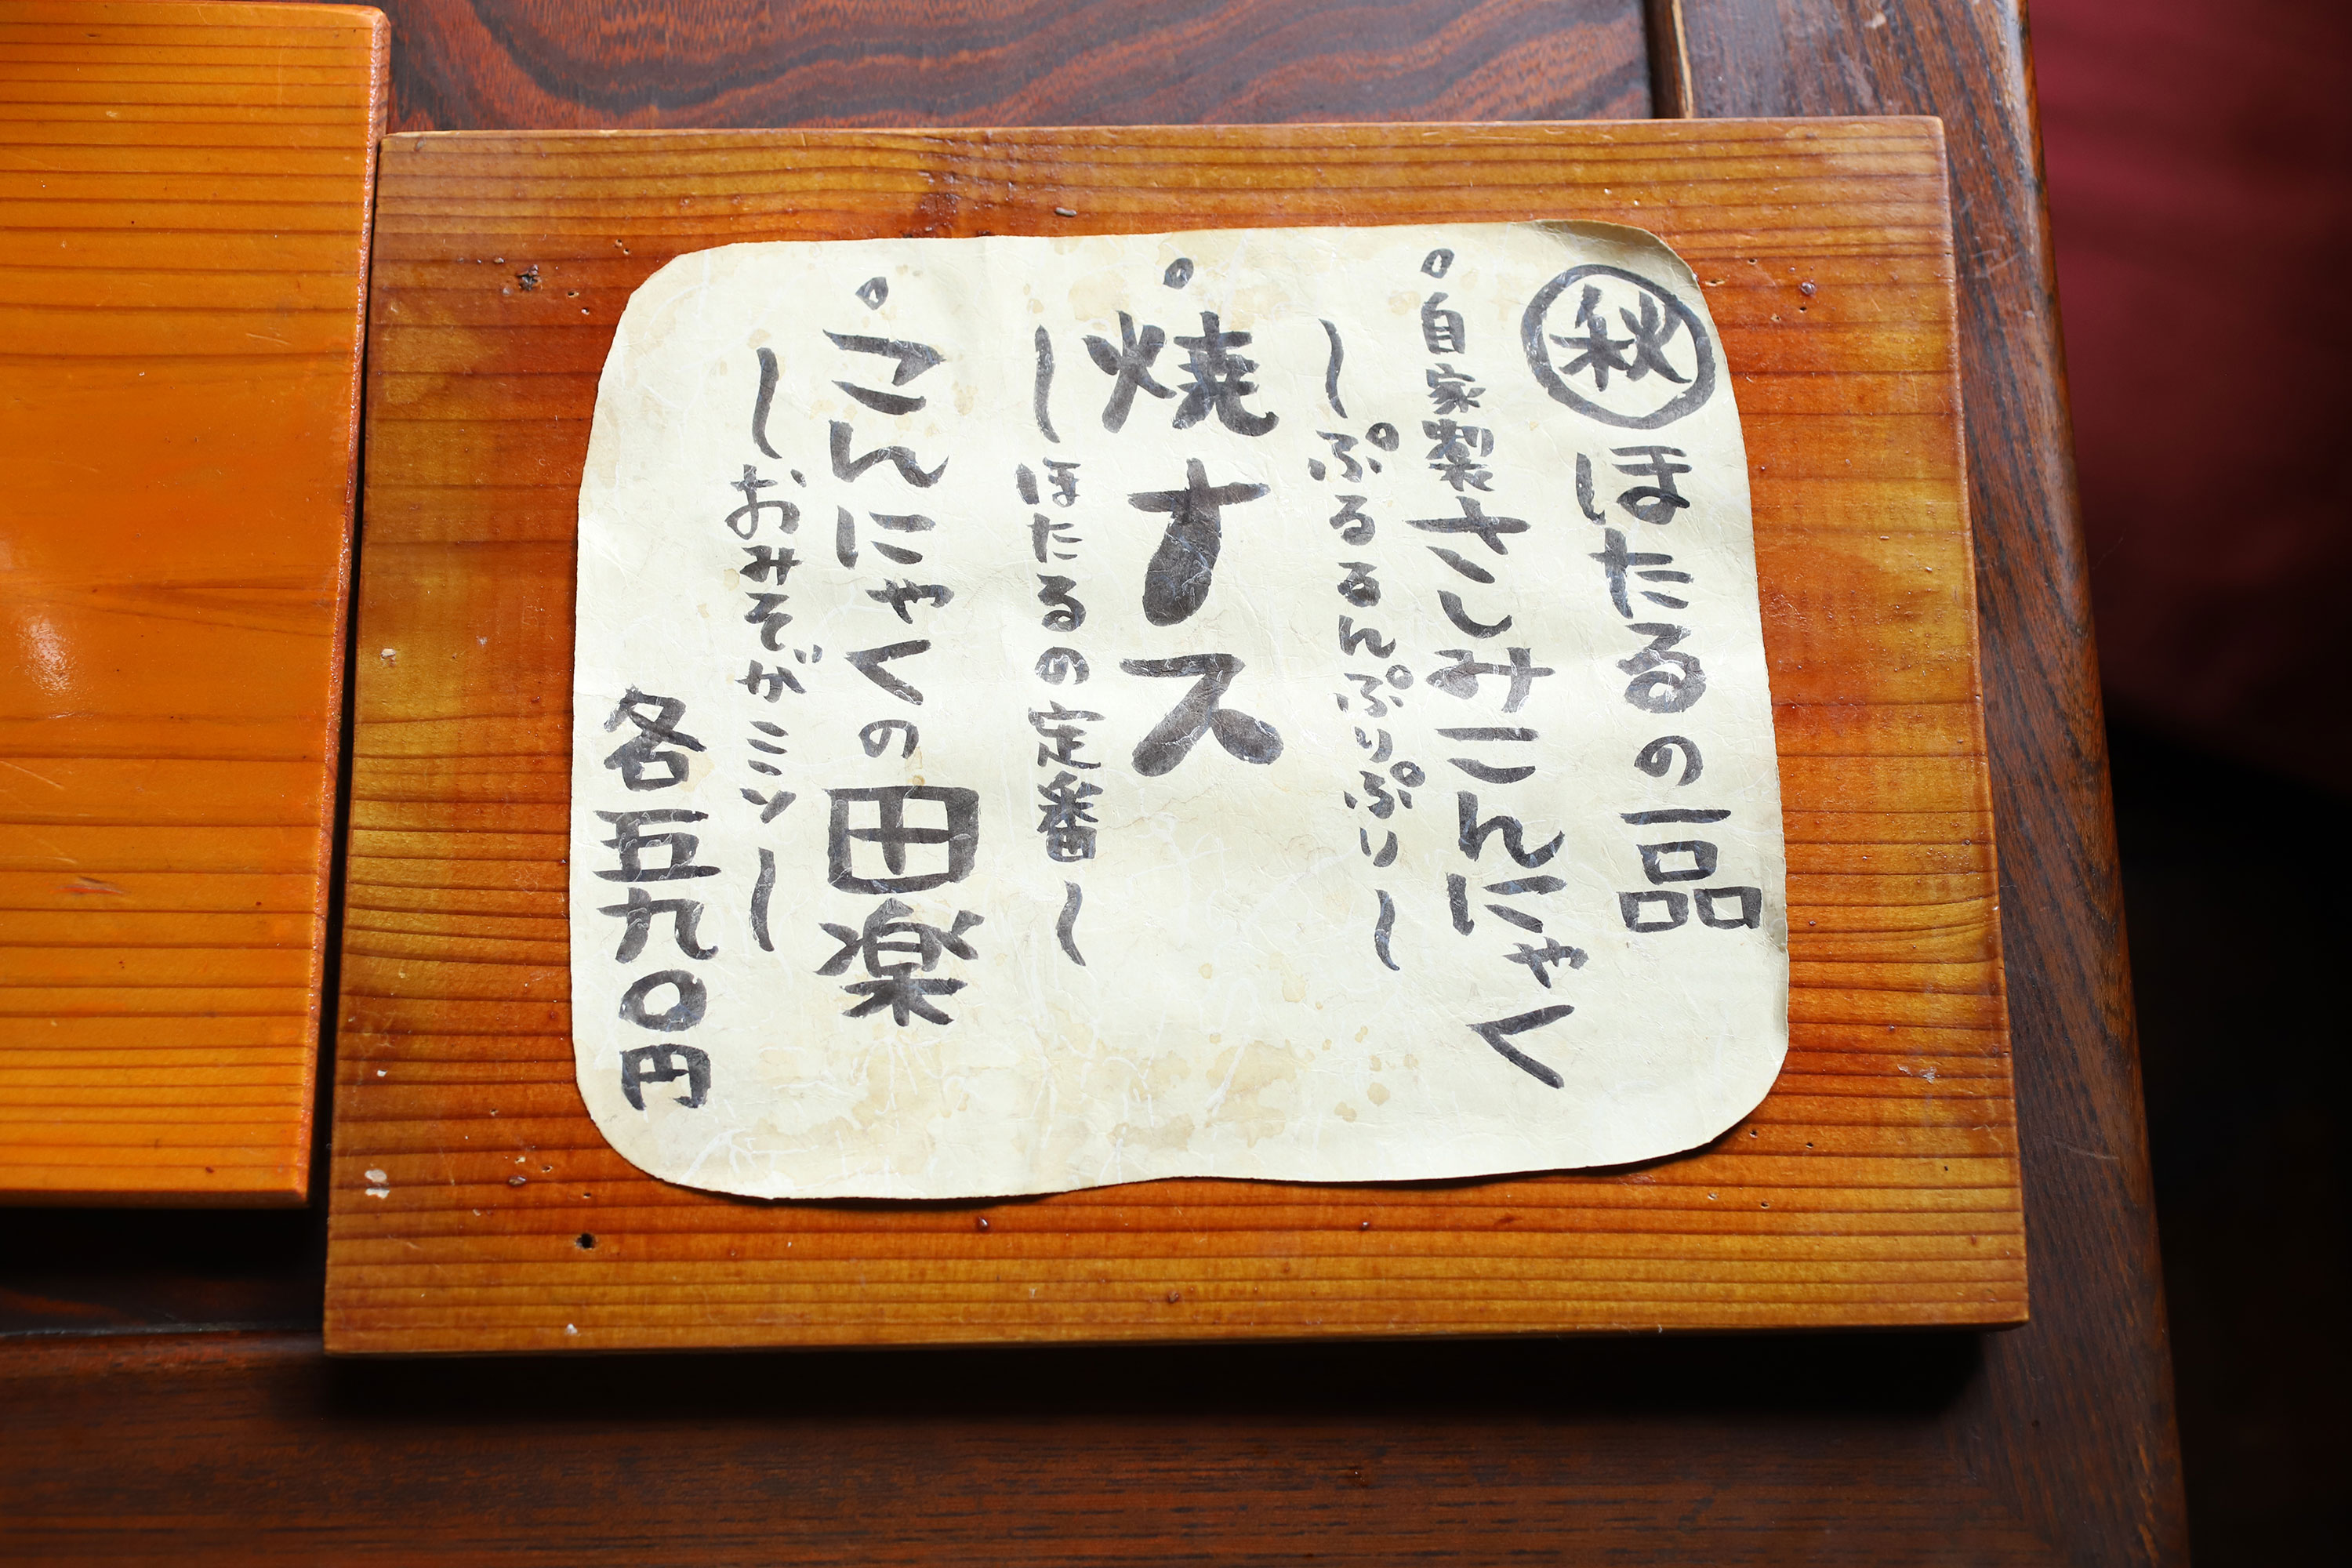 秋 ほたるの一品
。自家製さしみこんにゃく
～ぷるるんぷりぷり～
。焼ナス
～ほたるの定番～
。こんにゃくの田楽
～おみそがミソ～
各五九〇円